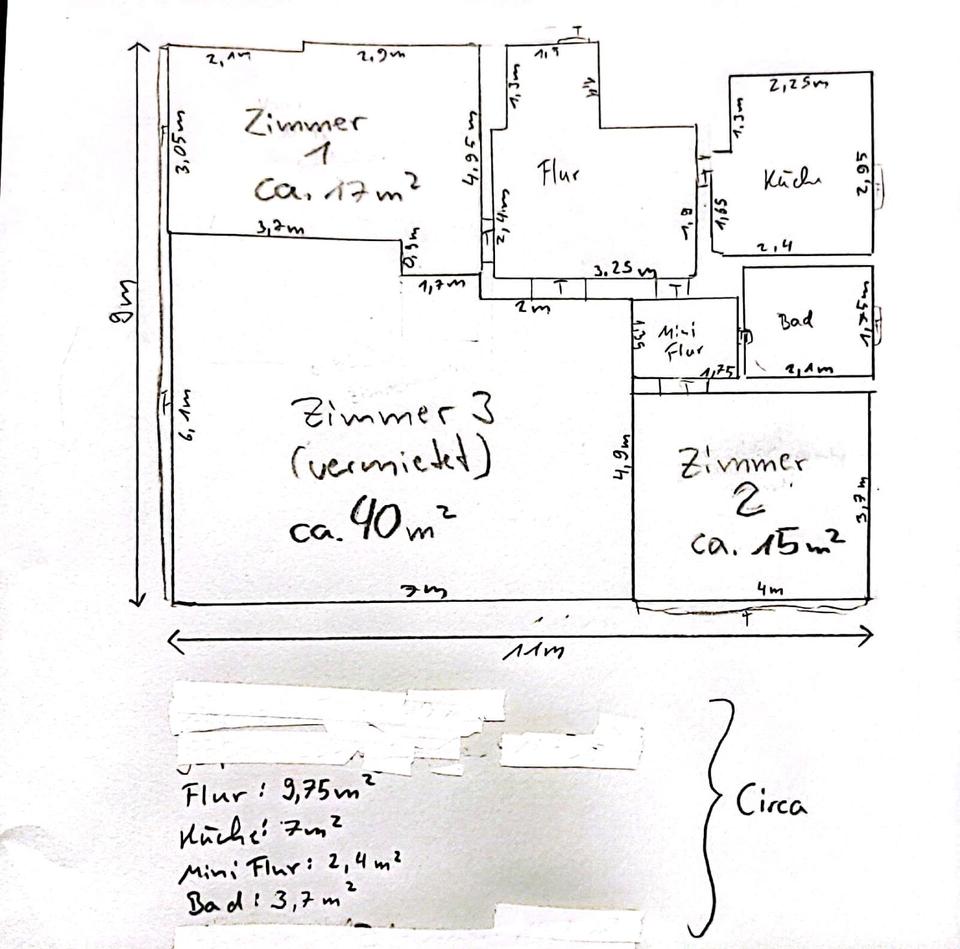 2,1m
2,9m
1,9
T
2,25m
1,3m
1,3m
3,05m
Zimmer
1
ca. 17m²
4,95m
Flur
2,4m
1,9
T
Küche
2,95
1,65
2,4
3,7m
0,9m
1,7m
3.25m
T
T
2m
9m
Mini
Flur
1,35
1,75
Bad
1,75m
2,1m
T
T
6,1m
Zimmer 3
(vermietet)
ca. 40m²
4,9m
Zimmer
2
ca. 15m²
3,7m
7m
4m
T
11m
Flur: 9,75m²
Küche: 7m²
Mini Flur: 2,4m²
Bad: 3,7m²
Circa